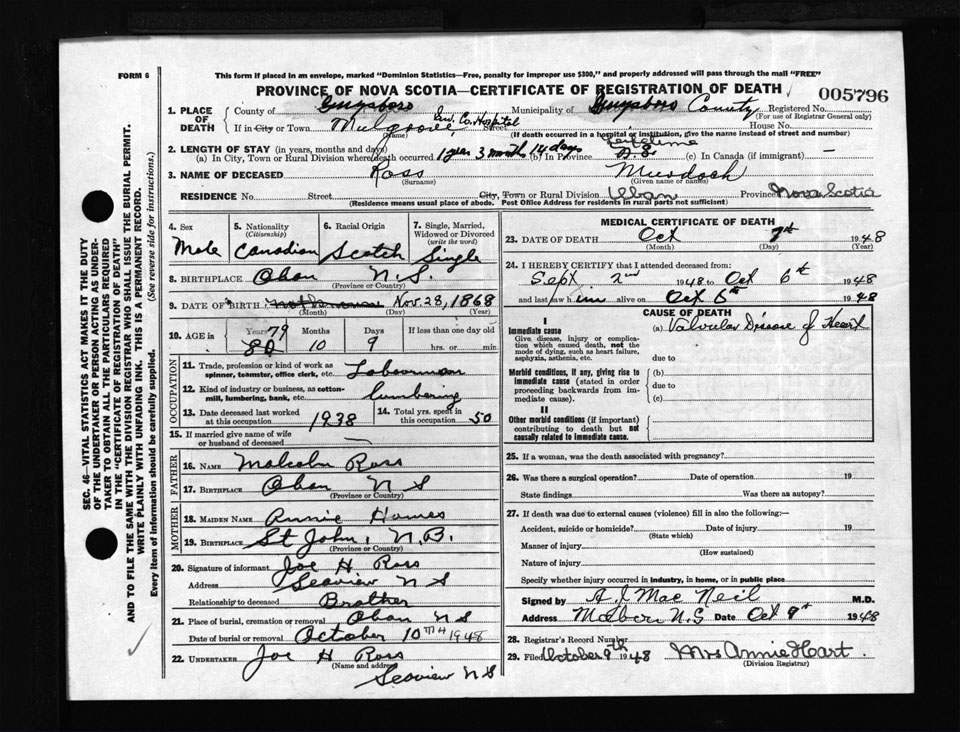 FORM 6
This form if placed in an envelope, marked "Dominion Statistics—Free, penalty for improper use $300," and properly addressed will pass through the mail "FREE"
PROVINCE OF NOVA SCOTIA—CERTIFICATE OF REGISTRATION OF DEATH
005796
1. PLACE OF DEATH
County of Guysboro Municipality of Guysboro County Registered No.
(For use of Registrar General only)
If in City or Town Mulgrave Street House No.
(Name) (If death occurred in a hospital or institution, give the name instead of street and number)
Co. Hospital
2. LENGTH OF STAY (in years, months and days)
(a) In City, Town or Rural Division where death occurred 1 year 3 months 14 days (b) In Province Lifetime (c) In Canada (if immigrant) —
3. NAME OF DECEASED Ross Murdoch
(Surname) (Given name or names)
RESIDENCE No. Street City, Town or Rural Division Province Nova Scotia
(Residence means usual place of abode. Post Office Address for residents in rural parts not sufficient)
4. Sex Male
5. Nationality (Citizenship) Canadian
6. Racial Origin Scotch
7. Single, Married, Widowed or Divorced (write the word) Single
8. BIRTHPLACE Oban N.S.
(Province or Country)
9. DATE OF BIRTH Nov. 28, 1868
(Month) (Day) (Year)
10. AGE in Years 79 80 Months 10 Days 9 If less than one day old hrs. or min.
OCCUPATION
11. Trade, profession or kind of work as spinner, teamster, office clerk, etc. Labourman
12. Kind of industry or business, as cotton-mill, lumbering, bank, etc. Lumbering
13. Date deceased last worked at this occupation 1938
14. Total yrs. spent in this occupation 50
15. If married give name of wife or husband of deceased —
FATHER
16. NAME Malcolm Ross
17. BIRTHPLACE Oban N S
(Province or Country)
MOTHER
18. MAIDEN NAME Annie
19. BIRTHPLACE St John, N.B.
(Province or Country)
20. Signature of informant Joe H Ross
Address Seaview N S
Relationship to deceased Brother
21. Place of burial, cremation or removal Oban N S
Date of burial or removal October 10TH 1948
22. UNDERTAKER Joe H Ross
(Name and address)
Seaview N S
MEDICAL CERTIFICATE OF DEATH
23. DATE OF DEATH Oct 7th 1948
(Month) (Day) (Year)
24. I HEREBY CERTIFY that I attended deceased from:
Sept. 2nd 1948 to Oct 6th 1948
and last saw him alive on Oct 6th 1948
CAUSE OF DEATH
I
Immediate cause
Give disease, injury or complication which caused death, not the mode of dying, such as heart failure, asphyxia, asthenia, etc.
(a) Valvular Disease of Heart
due to
Morbid conditions, if any, giving rise to immediate cause (stated in order proceeding backwards from immediate cause).
(b)
due to
(c)
II
Other morbid conditions (if important) contributing to death but not causally related to immediate cause.
25. If a woman, was the death associated with pregnancy?
26. Was there a surgical operation? Date of operation 19
State findings Was there an autopsy?
27. If death was due to external causes (violence) fill in also the following:—
Accident, suicide or homicide? Date of injury 19
(State which)
Manner of injury
(How sustained)
Nature of injury
Specify whether injury occurred in industry, in home, or in public place
Signed by A J MacNeil M.D.
Address N.S Date Oct 9th 1948
28. Registrar's Record Number
29. Filed October 9th 1948 Mrs Annie Hart.
(Division Registrar)
SEC. 46—VITAL STATISTICS ACT MAKES IT THE DUTY
OF THE UNDERTAKER OR PERSON ACTING AS UNDER-
TAKER TO OBTAIN ALL THE PARTICULARS REQUIRED
IN THE "CERTIFICATE OF REGISTRATION OF DEATH"
AND TO FILE THE SAME WITH THE DIVISION REGISTRAR WHO SHALL ISSUE THE BURIAL PERMIT.
WRITE PLAINLY WITH UNFADING INK. THIS IS A PERMANENT RECORD.
Every item of information should be carefully supplied. (See reverse side for instructions.)